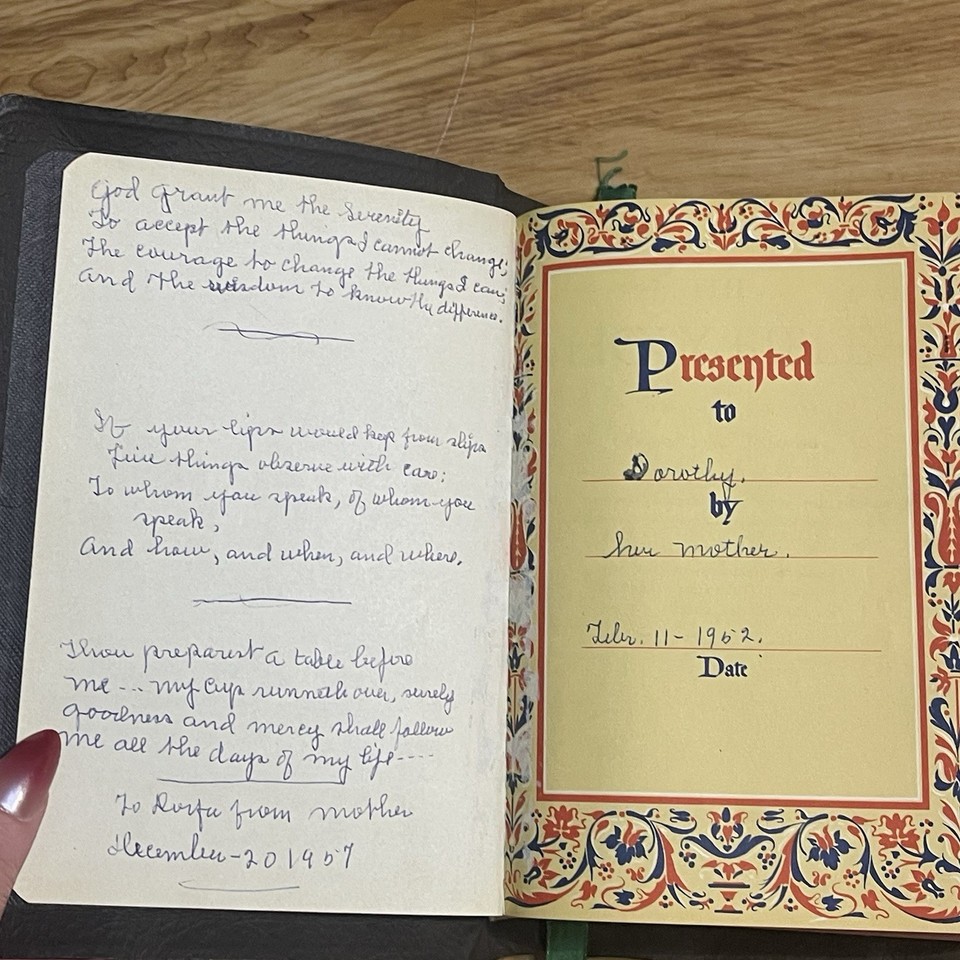 God grant me the Serenity
To accept the things I cannot change;
The courage to change the things I can;
And the wisdom to know the difference.
If your lips would keep from slips
Five things observe with care:
To whom you speak, of whom you
speak,
And how, and when, and where.
Thou preparest a table before
me --- my cup runneth over, surely
goodness and mercy shall follow
me all the days of my life----
To from mother
December-20 1957
Presented
to
Dorothy.
by
her mother.
Febr. 11-1952.
Date